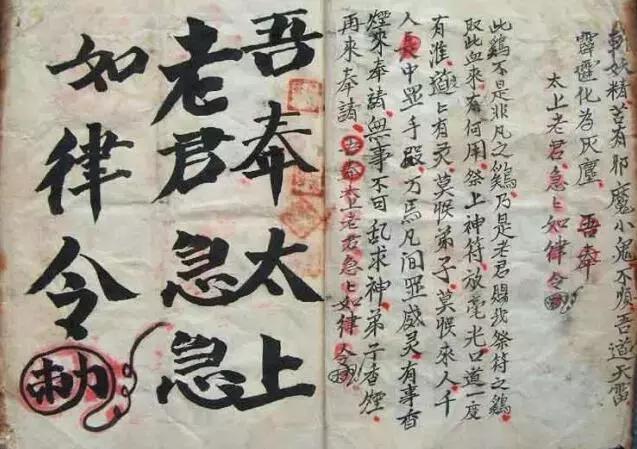 斬妖精若有邪魔小鬼不順吾道天雷
霹靂化為灰塵 吾奉
太上老君急々如律令
此鷄不是非凡之鷄乃是老君賜我祭符之鷄
取此血來有何用祭上神符放毫光口道一度
有准道々有灵莫睺弟子莫睺來人千
人中显手段万馬凡间显威灵有事香
煙來奉請無事不可乱求神弟子香煙
再來奉請吾奉太上老君急々如律令
吾奉太上
老君急急
如律令
勅